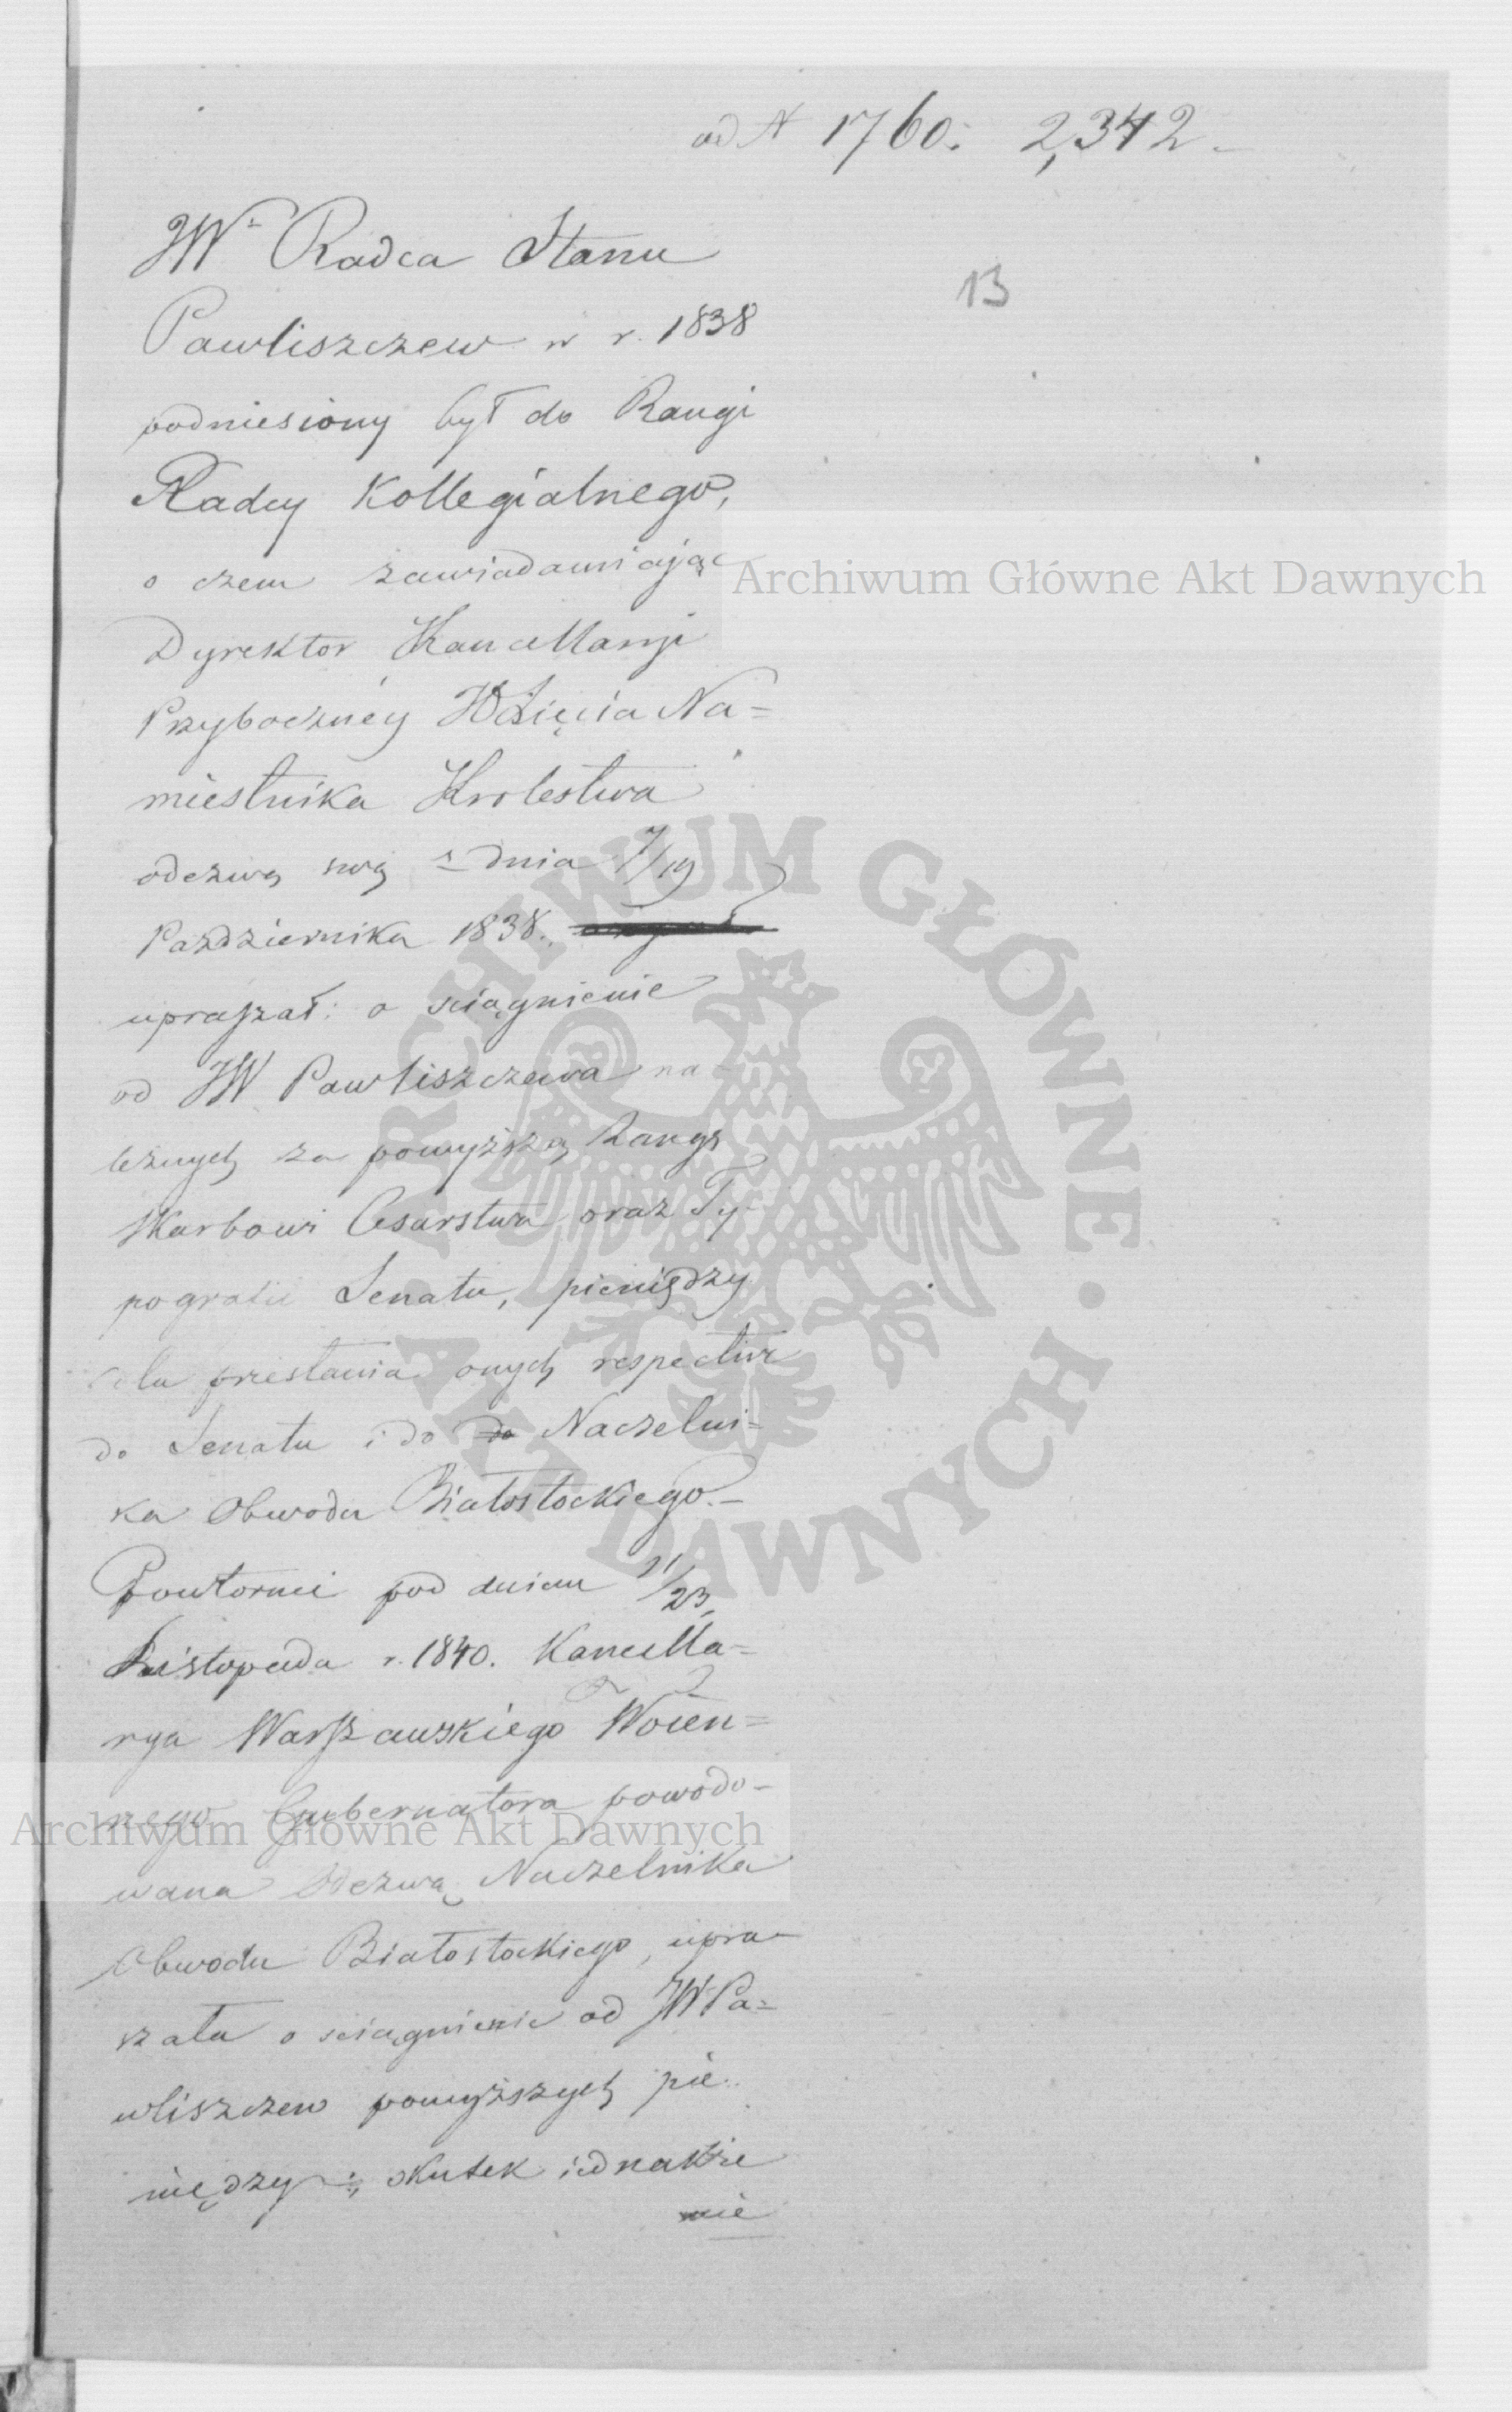 ad N 1760. 2,342
13
JW. Radca Stanu
Pawliszczew w r. 1838
podniesiony był do Rangi
Radcy Kollegialnego,
o czem zawiadamiając
Archiwum Główne Akt Dawnych
Dyrektor Kancellaryi
Przybocznéy Xdzięcia Na=
miestnika Krolestwa
odezwą swą z dnia 7/19
Pazdziernika 1838.
upraszał: o sciągnienie
od JW Pawliszczewa na-
leżnych za powyższą Rangę
Skarbowi Cesarstwa oraz Ty-
pografii Senatu, pieniędzy
celu przesłania onych respective
do Senatu i do do Naczelni=
ka Obwodu Białostockiego.-
Powtornie pod dniem 11/23
Listopada r. 1840. Kancella=
rya Warszawskiego Woien=
nego Gubernatora powodo-
Archiwum Główne Akt Dawnych
wana Odezwą Naczelnika
Obwodu Białostockiego, upra-
szała o sciągnienie od JW Pa=
wliszczew powyższych pie-
niędzy; skutek iednakże
nie
ARCHIWUM GŁÓWNE • AKT DAWNYCH •